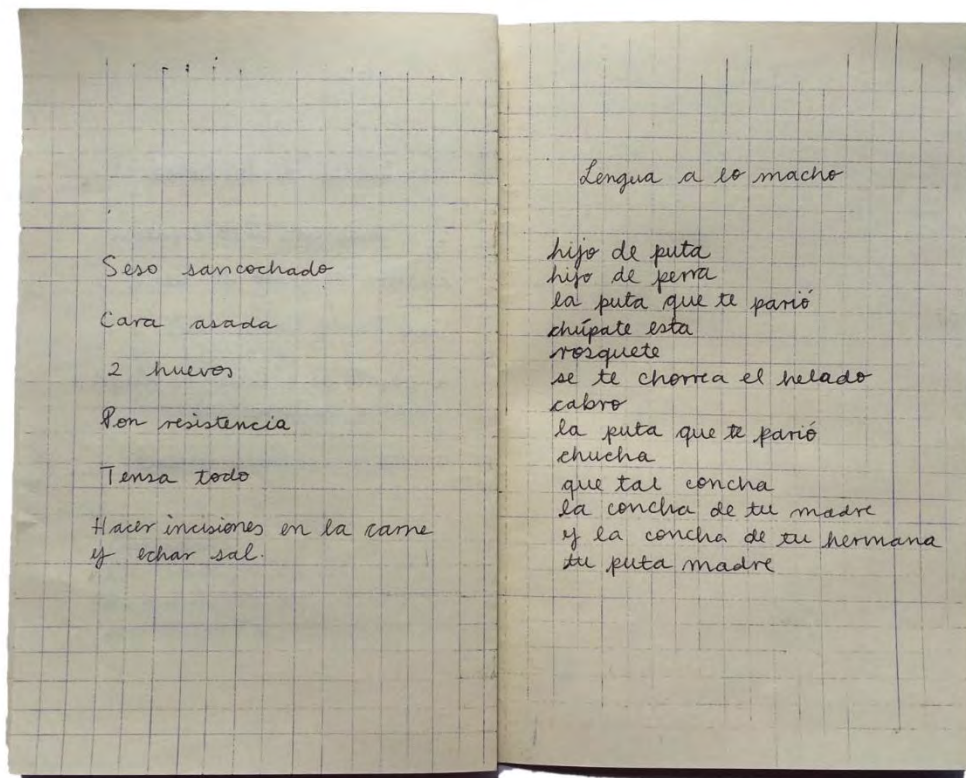 Seso sancochado
Cara asada
2 huevos
Pon resistencia
Tensa todo
Hacer incisiones en la carne
y echar sal.
Lengua a lo macho
hijo de puta
hijo de perra
la puta que te parió
chúpate esta
rosquete
se te chorrea el helado
cabro
la puta que te parió
chucha
que tal concha
la concha de tu madre
y la concha de tu hermana
tu puta madre